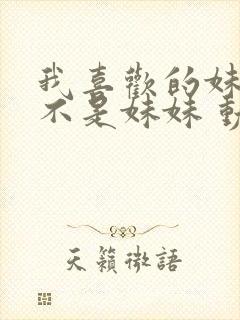 我喜歡的妹
不是妹妹 動
天籟微語